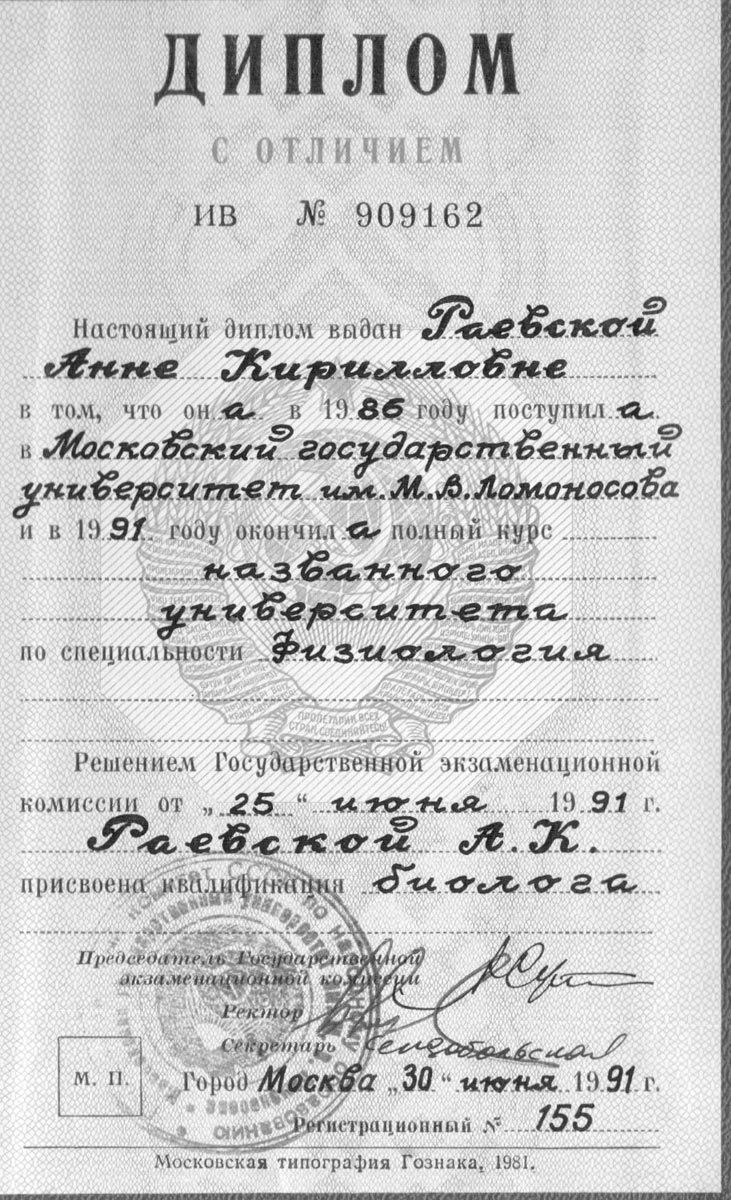 ДИПЛОМ
С ОТЛИЧИЕМ
ИВ № 909162
Настоящий диплом выдан Раевской
Анне Кирилловне
в том, что он а в 1986 году поступил а
в Московский государственный
университет им. М. В. Ломоносова
и в 1991 году окончил а полный курс
названного
университета
по специальности Физиология
ПРОЛЕТАРИИ ВСЕХ
СТРАН, СОЕДИНЯЙТЕСЬ!
Решением Государственной экзаменационной
комиссии от „25“ июня 1991 г.
Раевской А. К.
присвоена квалификация биолога
Председатель Государственной
экзаменационной комиссии
Ректор
Секретарь
М. П. Город Москва „30“ июня 1991 г.
Регистрационный № 155
Московская типография Гознака, 1981.